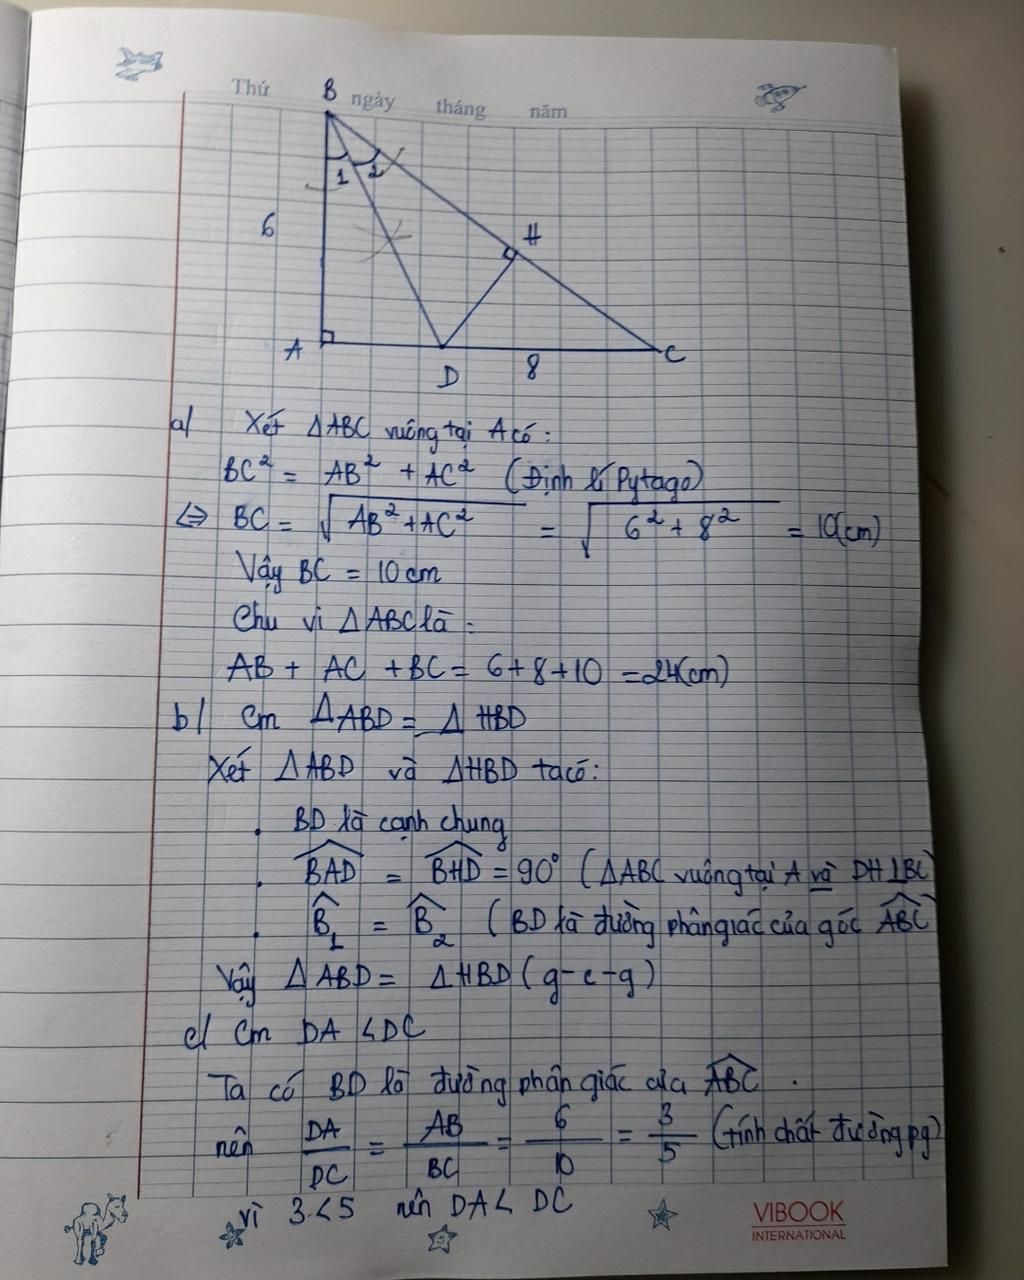 Thứ ngày tháng năm
B
1 2
6
H
A
D
8
C
a/ Xét ΔABC vuông tại A có:
BC² = AB² + AC² (Định lí Pytago)
⇔ BC = √(AB² + AC²) = √(6² + 8²) = 10(cm)
Vậy BC = 10 cm
Chu vi ΔABC là:
AB + AC + BC = 6 + 8 + 10 = 24(cm)
b/ Cm ΔABD = ΔHBD
Xét ΔABD và ΔHBD ta có:
. BD là cạnh chung
. \widehat{BAD} = \widehat{BHD} = 90° (ΔABC vuông tại A và DH⊥BC)
. \widehat{B}₁ = \widehat{B}₂ (BD là đường phân giác của góc \widehat{ABC})
Vậy ΔABD = ΔHBD (g-c-g)
c/ Cm DA < DC
Ta có BD là đường phân giác của \widehat{ABC} .
nên DA/DC = AB/BC = 6/10 = 3/5 (tính chất đường pg)
vì 3 < 5 nên DA < DC
VIBOOK
INTERNATIONAL